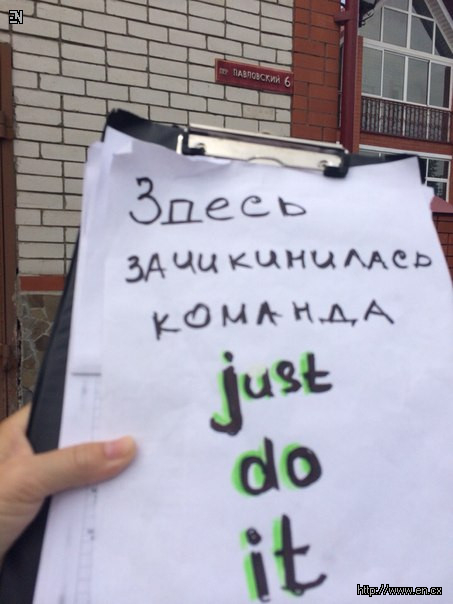 EN
пер ПАВЛОВСКИЙ 6
Здесь
ЗАЧИКИНИЛАСЬ
КОМАНДА
just
do
it
http://www.en.cx